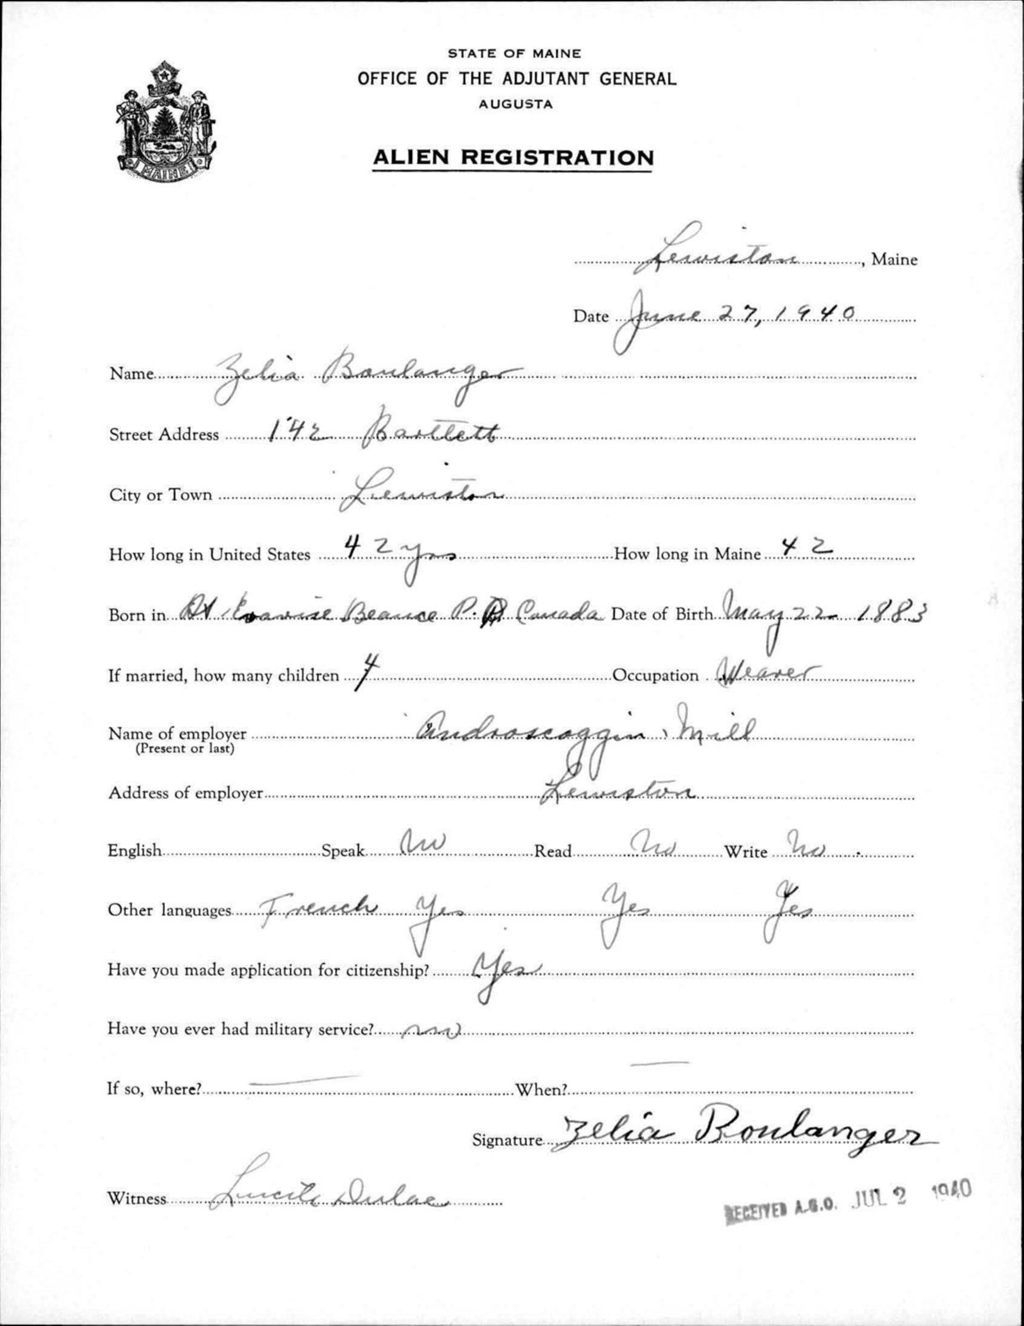 STATE OF MAINE
OFFICE OF THE ADJUTANT GENERAL
AUGUSTA
ALIEN REGISTRATION
MAINE
Lewiston, Maine
Date June 27, 1940
Name Zelia Boulanger
Street Address 142 Bartlett
City or Town Lewiston
How long in United States 42 yrs How long in Maine 42
Born in St Evariste Beauce P. Q Canada Date of Birth May 22 1883
If married, how many children 4 Occupation Weaver
Name of employer Androscoggin Mill
(Present or last)
Address of employer Lewiston
English Speak No Read No Write No
Other languages French Yes Yes Yes
Have you made application for citizenship? Yes
Have you ever had military service? no
If so, where? — When? —
Signature Zelia Boulanger
Witness Lucile Dulac
RECEIVED A.G.O. JUL 2 1940